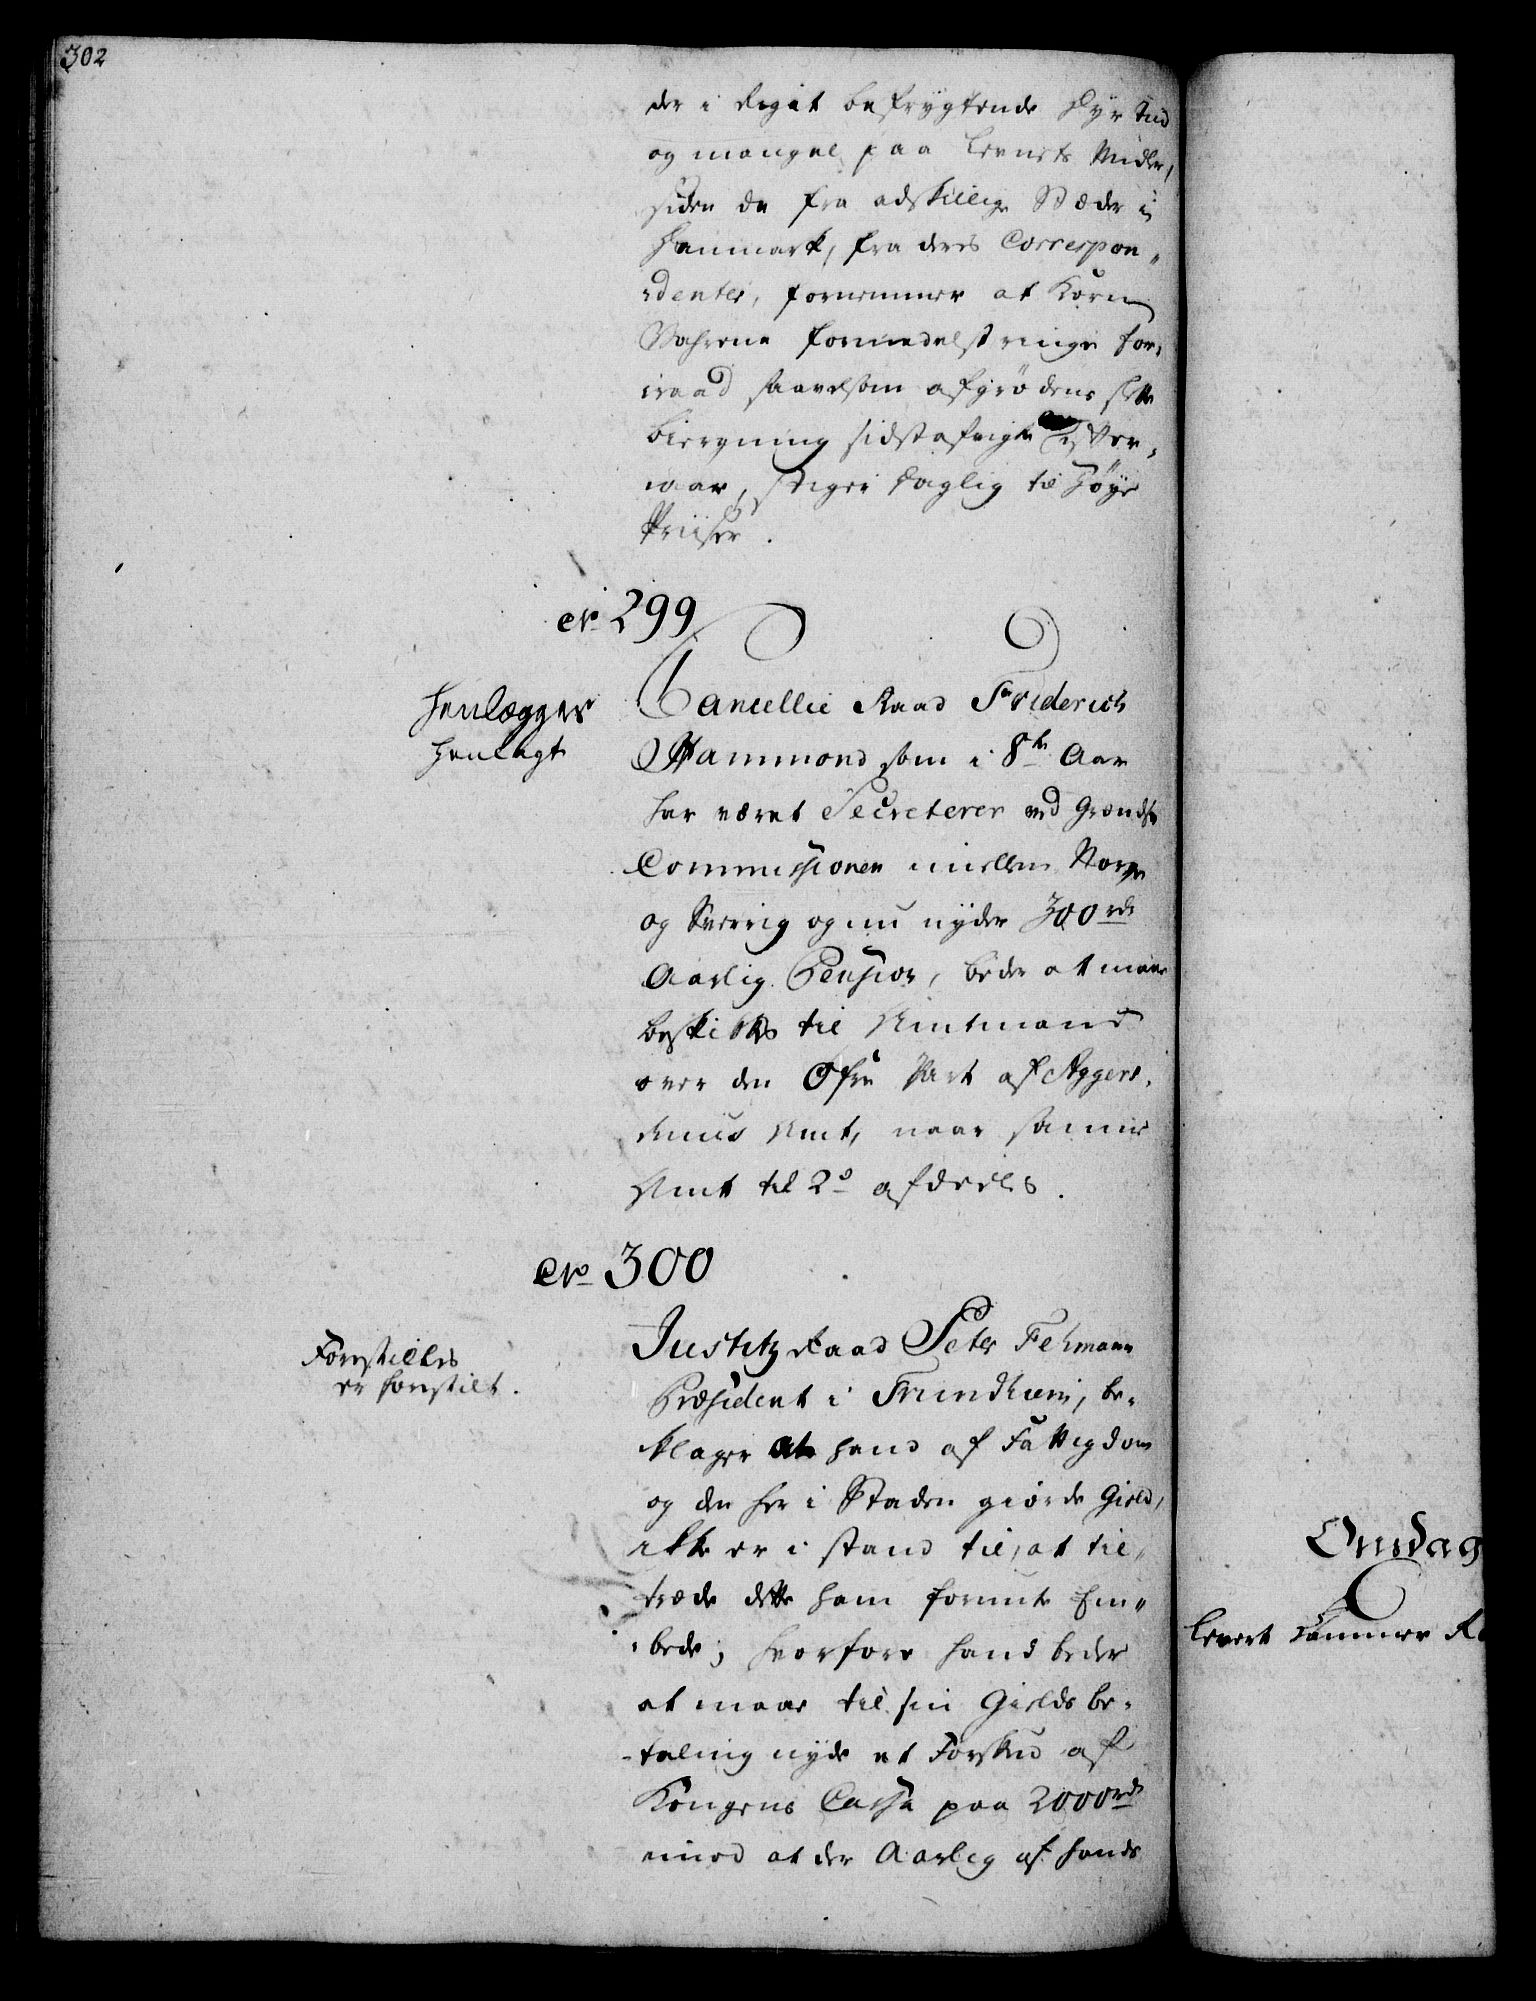 302
der i Riget befrygtende Dyr Tiid
og mangel paa Levnets Midler,
siden de fra adskillige Stæder i
Danmark, fra deres Correspon„
denter, fornemmer at Korn
Vahrene formedelst ringe for„
raad saavelsom afgrødens slette
biergning sidstafvigte
steiger daglig til høye
Priiser.
No 299
Henlægges
henlagt
Cancellie Raad Friderich
Hammond som i 8te Aar
har været Secreterer ved Grændse
Commissionen imellem Norge
og Sverrig og nu nyder 300 rdr
Aarlig Pension, beder at maae
beskikkes til Amtmand
over den Øfre Part af Aggers„
huus Amt, naar samme
Amt til 2de afdeeles.
No 300
Forestilles
er forestilt.
Justitz Raad Peter Fehmann
Præsident i Trundhiem, be„
klager at hand af Fattigdom
og den her i Staden giorde Gield,
ikke er i stand til, at til„
træde dette ham forundte Em„
bede; hvorfore hand beder
at maae til sin Gields be„
taling nyde et Forskud af
Kongens Cassa paa 2000 rdr
imod at der Aarlig af hands
Onsdag
levert Cammer